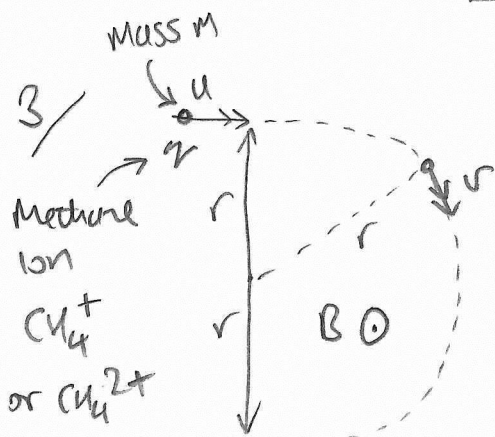 Mass M
3/
u
q
Methane
ion
CH₄⁺
or CH₄²⁺
r
r
r
v
B ⊙